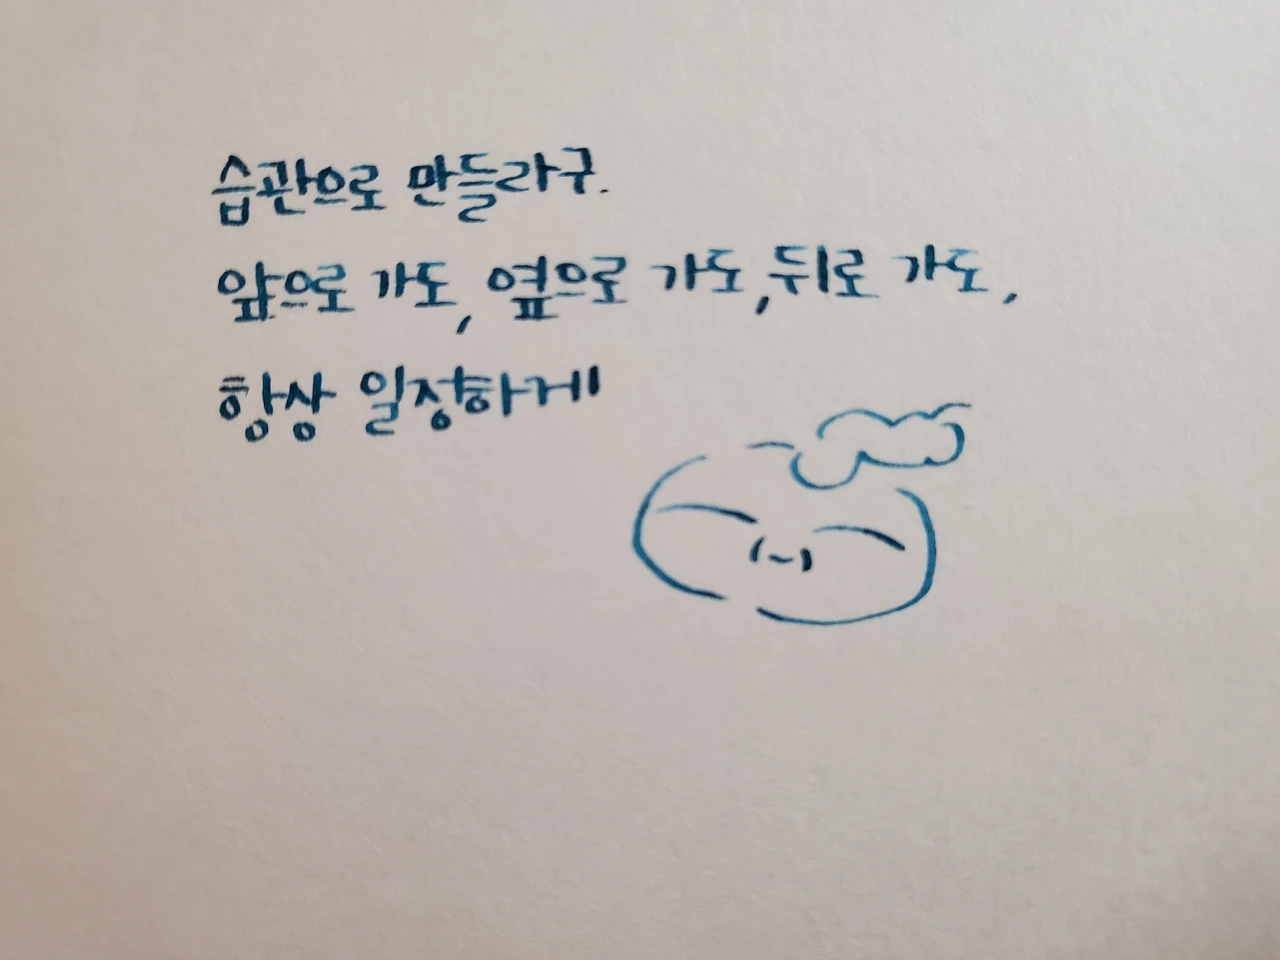 습관으로 만들라구.
앞으로 가도, 옆으로 가도, 뒤로 가도,
항상 일정하게